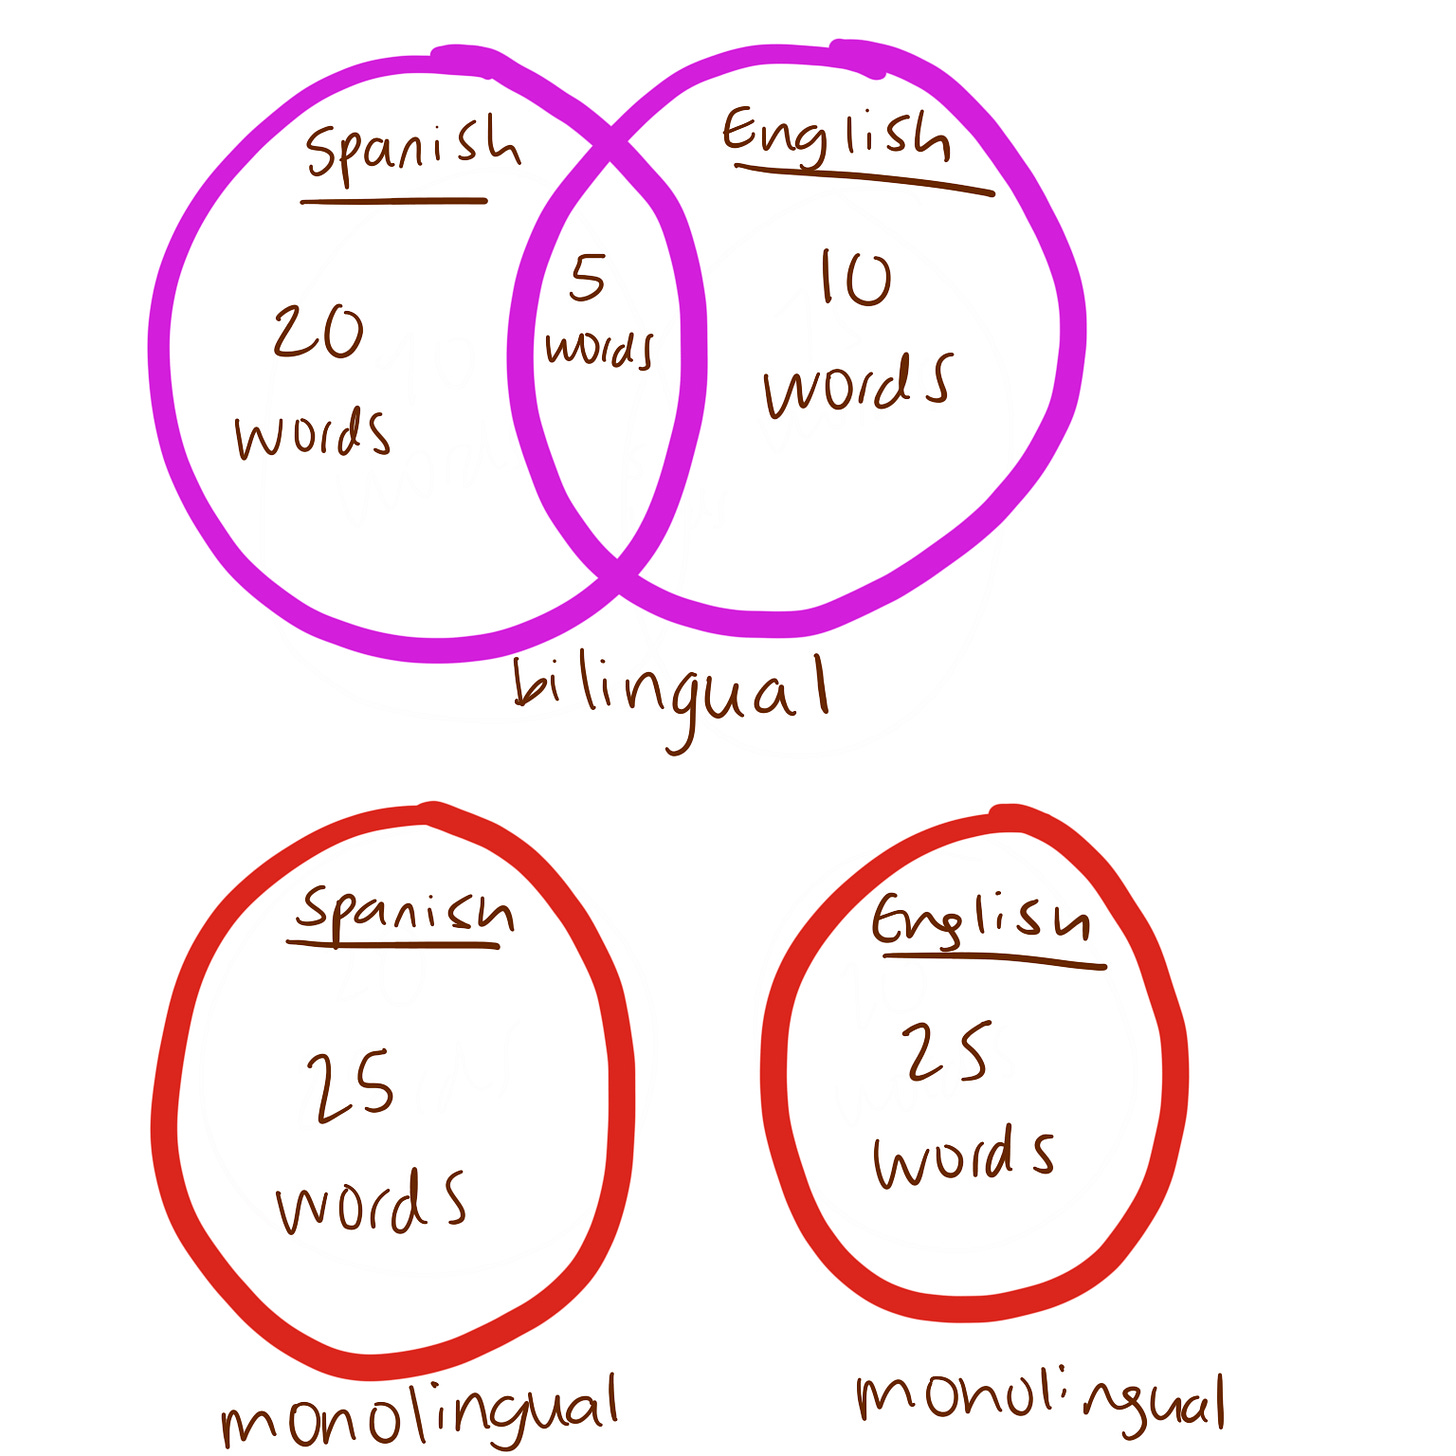 Spanish
English
20
words
5
words
10
words
bilingual
Spanish
25
words
monolingual
English
25
words
monolingual